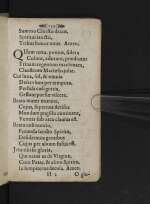 Summo Christo decus,
Spiritui sancto,
Tribus honor unus. Amen.
Quem terra, pontus, sidera
Colunt, adorant, prædicant
Trinam regentem machinam,
Claustrum Mariæ bajulat.
Cui luna, sol, & omnia
Deserviunt per tempora,
Perfusa cæli gratia,
Gestant puellæ viscera.
Beata mater munere,
Cujus, supernus artifex
Mundum pugillo continens,
Ventris sub arca clausus est.
Beata cæli nuntio,
Fecunda sancto Spiritu,
Desideratus gentibus
Cujus per alvum fusus est.
gloria,
Qui natus es de Virgine,
Cum Patre, & almo Spiritu,
In sempiterna sæcula. Amen.